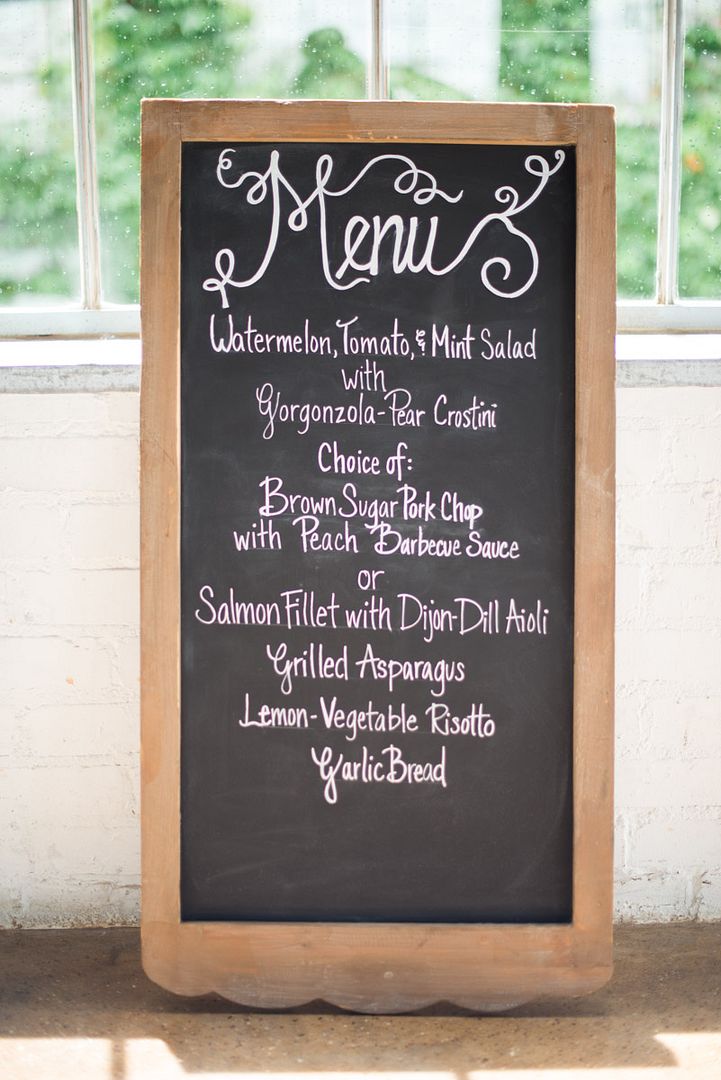 Menu
Watermelon, Tomato, & Mint Salad
with
Gorgonzola-Pear Crostini
Choice of:
Brown Sugar Pork Chop
with Peach Barbecue Sauce
or
Salmon Fillet with Dijon-Dill Aioli
Grilled Asparagus
Lemon-Vegetable Risotto
Garlic Bread